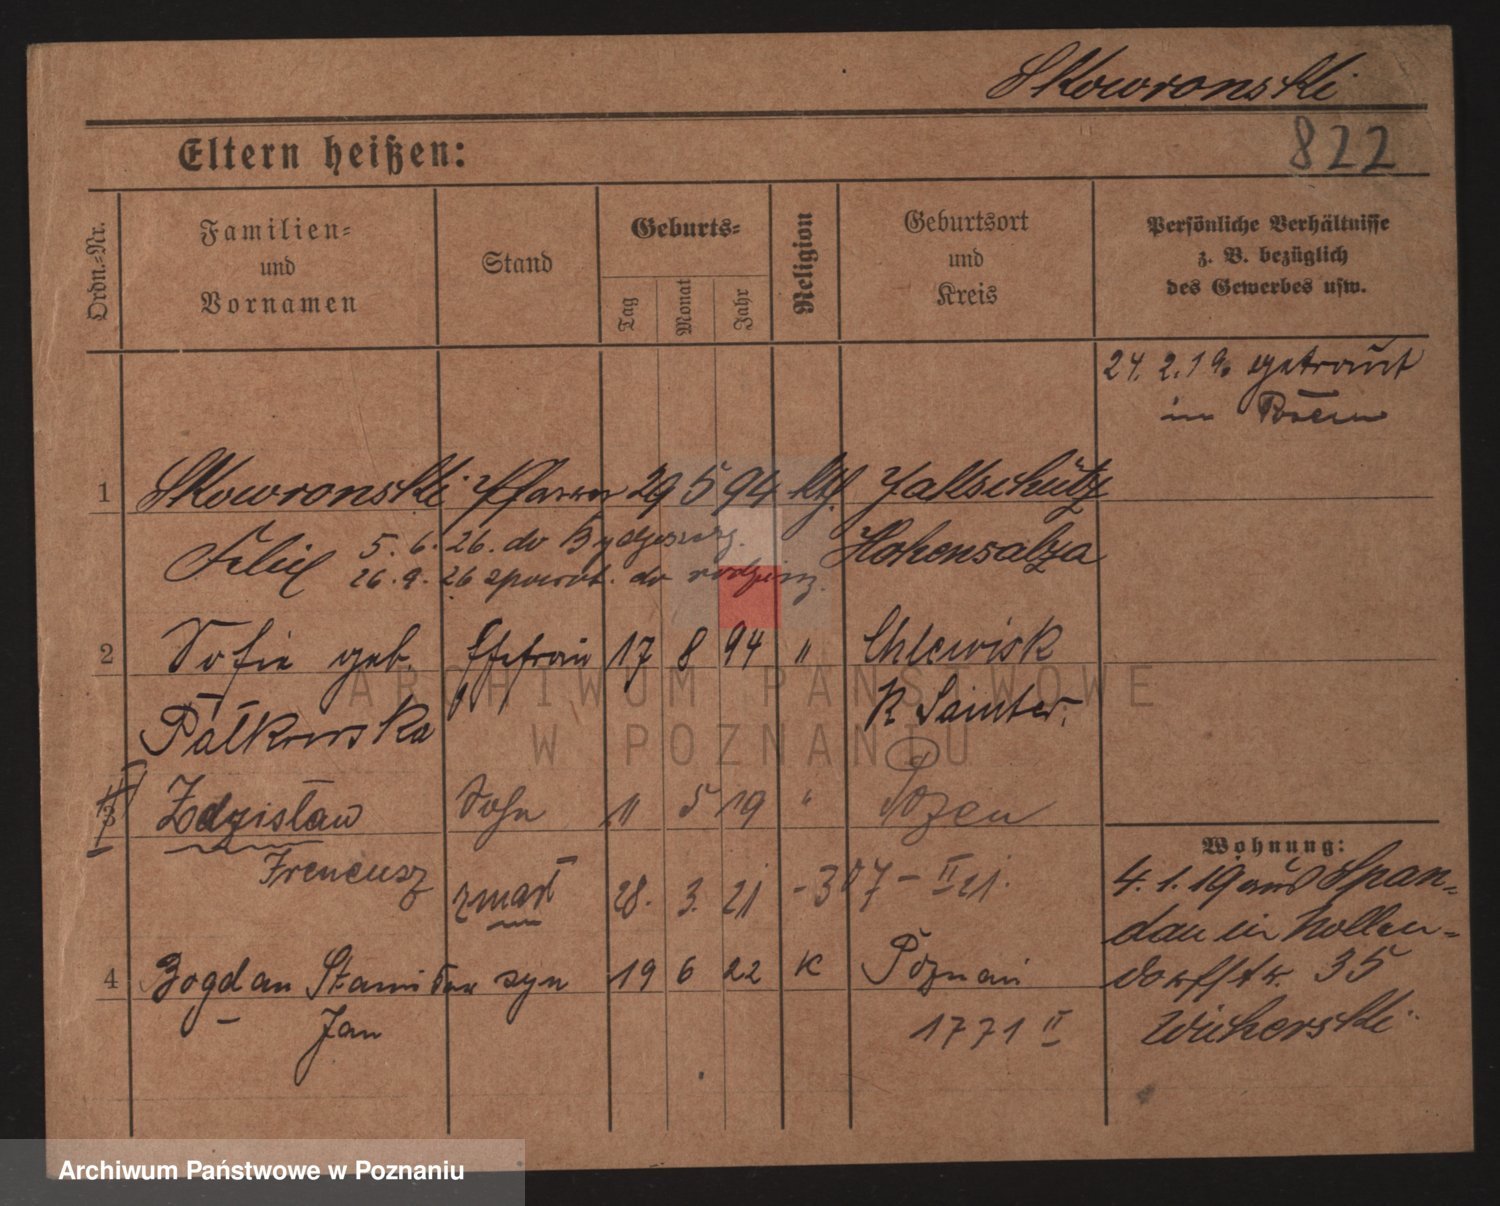 Skowronski
822
Eltern heißen:
Ordn.-Nr.
Familien- und Vornamen
Stand
Geburts-
Tag
Monat
Jahr
Religion
Geburtsort und Kreis
Persönliche Verhältnisse z. B. bezüglich des Gewerbes usw.
24. 2. 19 getraut
in Posen
1 Skowronski 29 5 94 kth. Jakschütz
Felix 5. 6. 26. do Bydgoszcz. Hohensalza
26. 9. 26 spowrot. do rodziny.
2 Sofie geb. Ehefrau 17 8 94 " Chlewisk
Pałkowska K Samter.
3 Zdzisław Sohn 11 5 19 " Pozen
Ireneusz zmarł 28. 3. 21 - 307 - II 21.
Wohnung:
4. 1. 19 aus Span-
dau in Nollen-
dorfstr. 35
Wicherski
4 Bogdan Stanisław syn 19 6 22 K Poznań
Jan 1771 II
ARCHIWUM PAŃSTWOWE
W POZNANIU
Archiwum Państwowe w Poznaniu